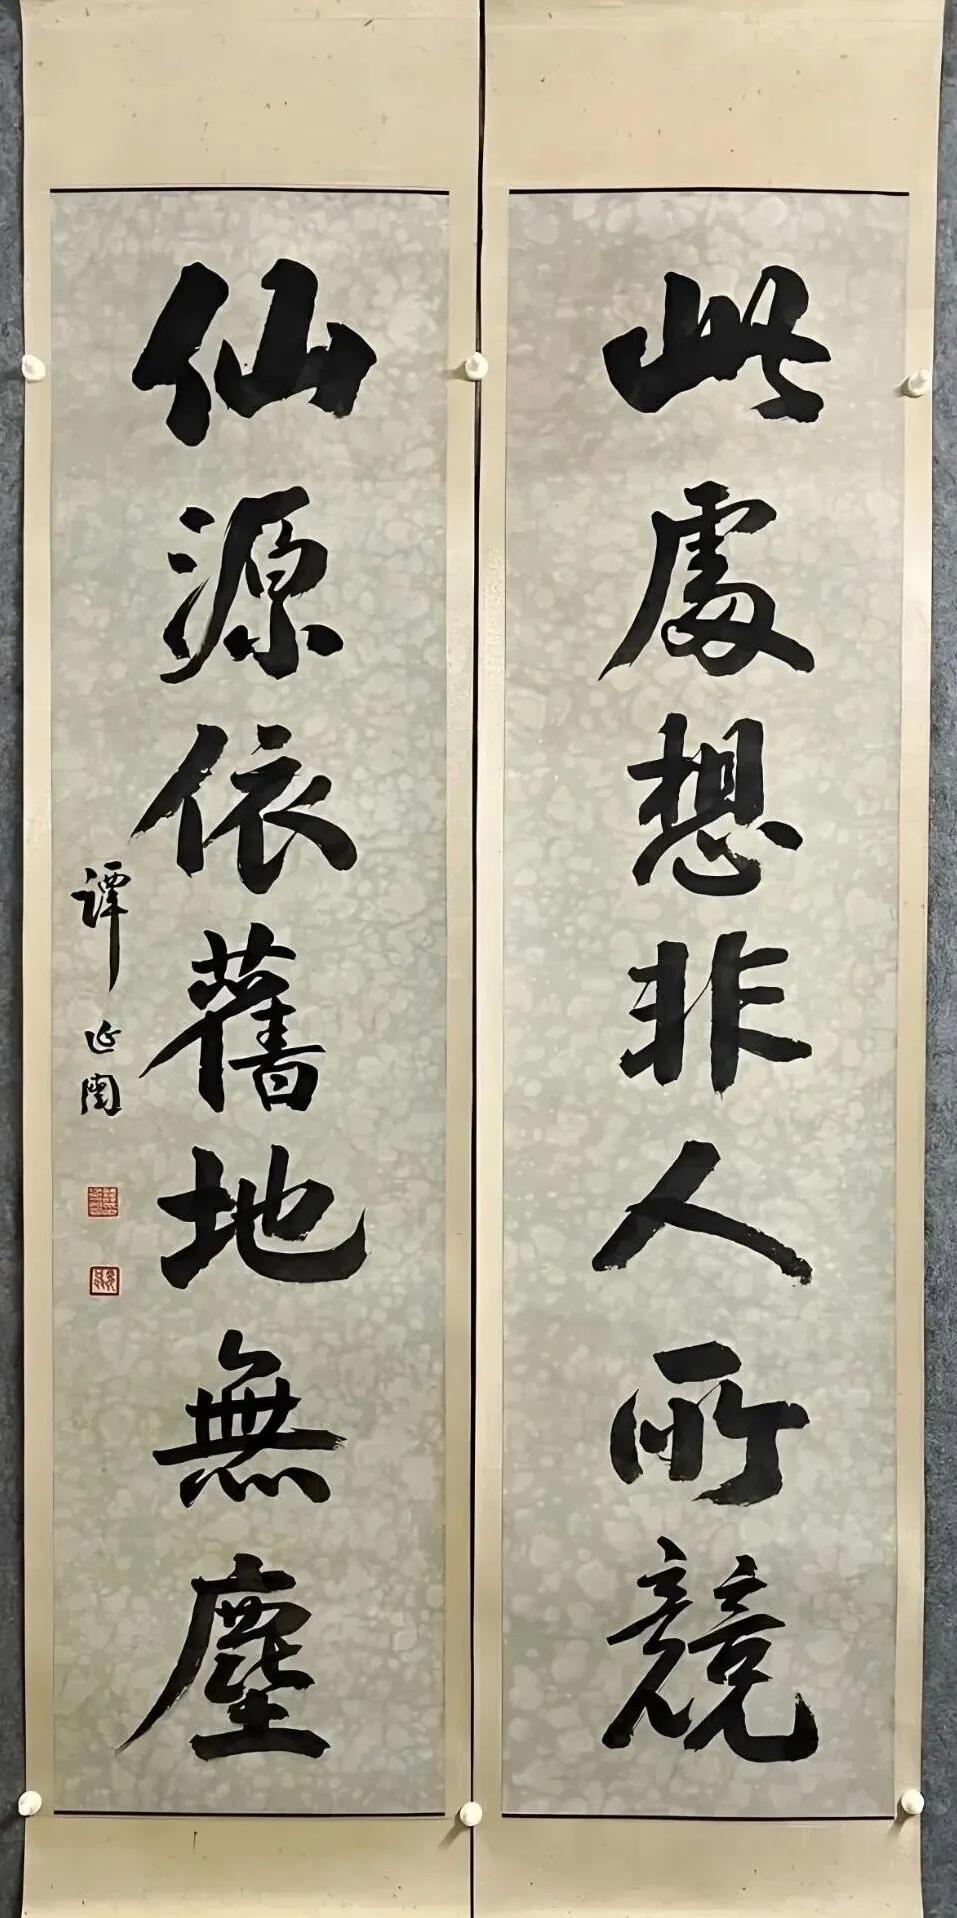 此處想非人所競
仙源依舊地無塵
譚延闓